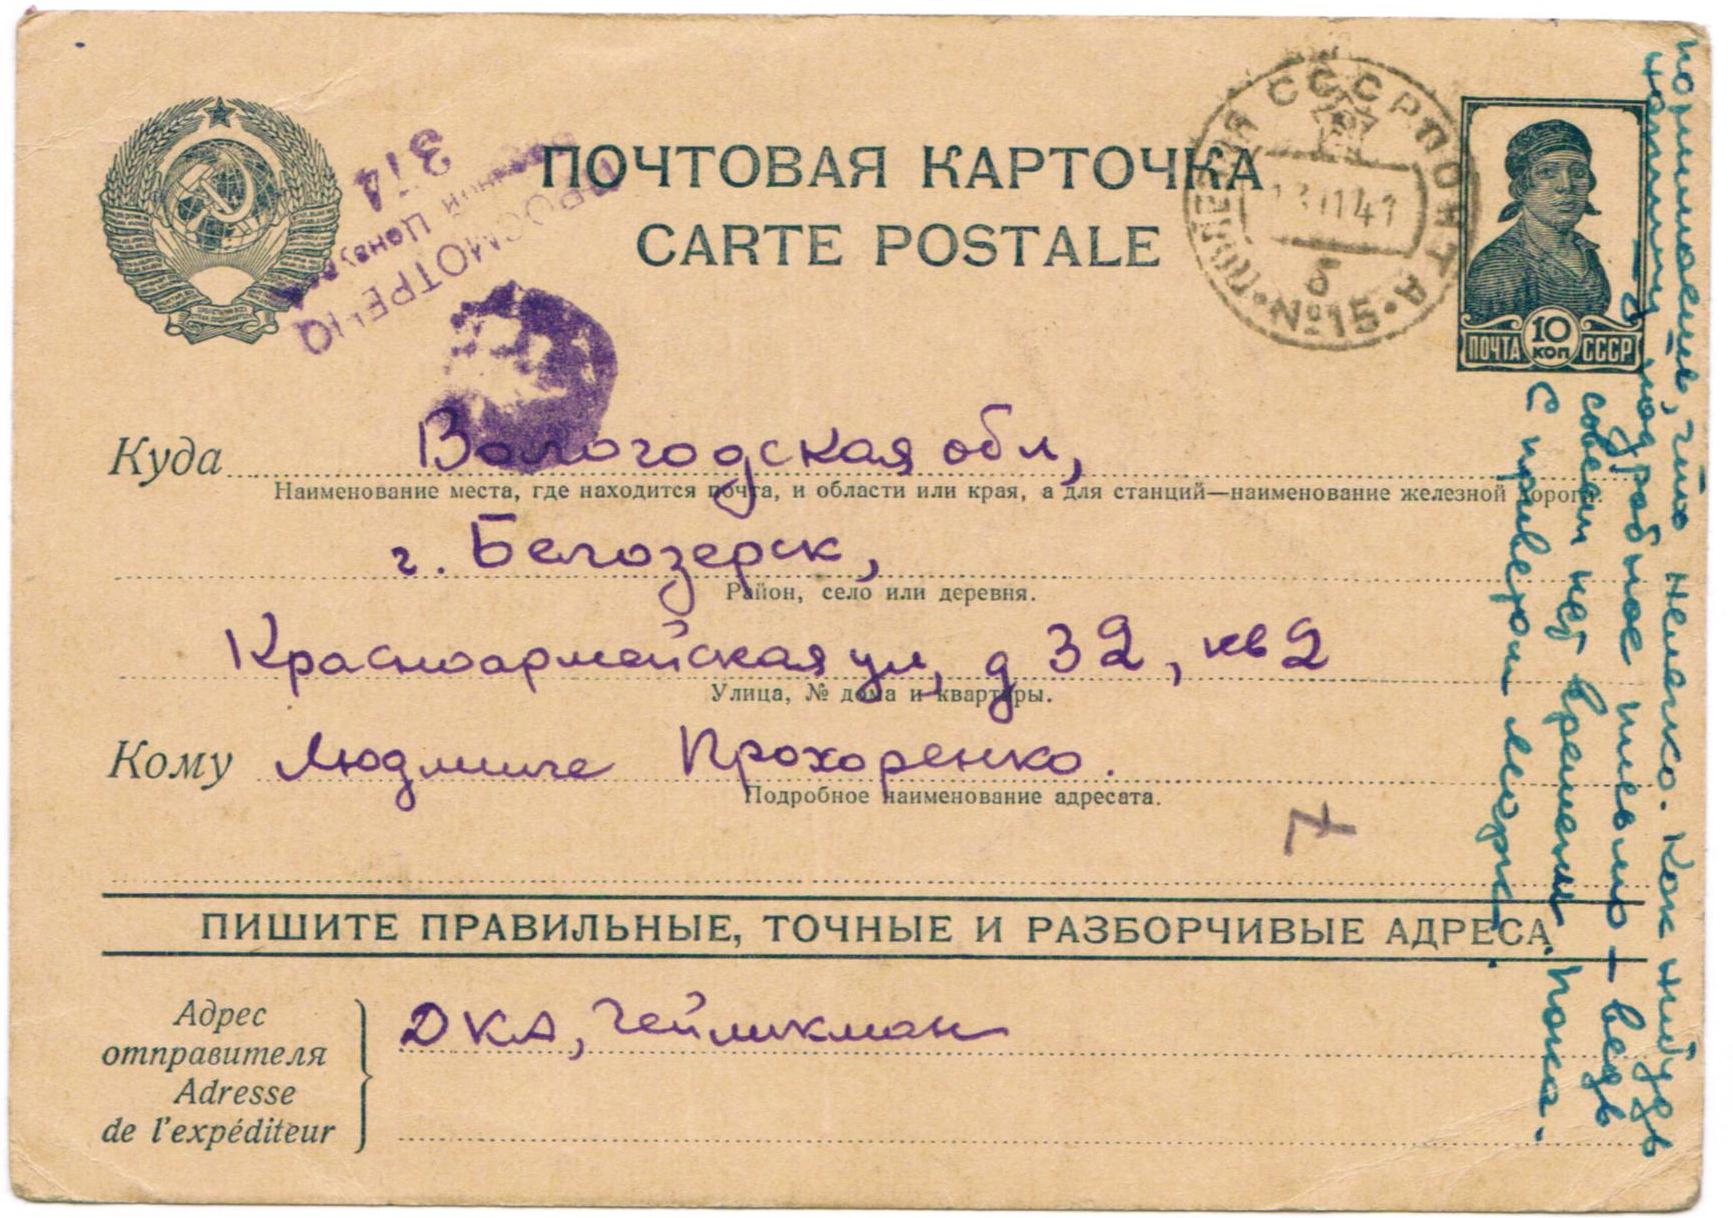 ПОЧТОВАЯ КАРТОЧКА
CARTE POSTALE
ПРОСМОТРЕНО
Военной Цензурой
314
ПОЛЕВАЯ ПОЧТА СССР
11 41
б
№15
ПОЧТА 10 КОП СССР
Куда Вологодская обл,
Наименование места, где находится почта, и области или края, а для станций—наименование железной дороги.
г. Белозерск,
Район, село или деревня.
Красноармейская ул, д 32, кв 2
Улица, № дома и квартиры.
Кому Людмиле Прохоренко.
Подробное наименование адресата.
ПИШИТЕ ПРАВИЛЬНЫЕ, ТОЧНЫЕ И РАЗБОРЧИВЫЕ АДРЕСА
Адрес
отправителя
Adresse
de l'expéditeur
ДКА, Гейликман
понимаешь, что нелегко. Как нибудь
напишу подробное письмо — ведь
совсем нет времени. Пока.
С приветом Марк.